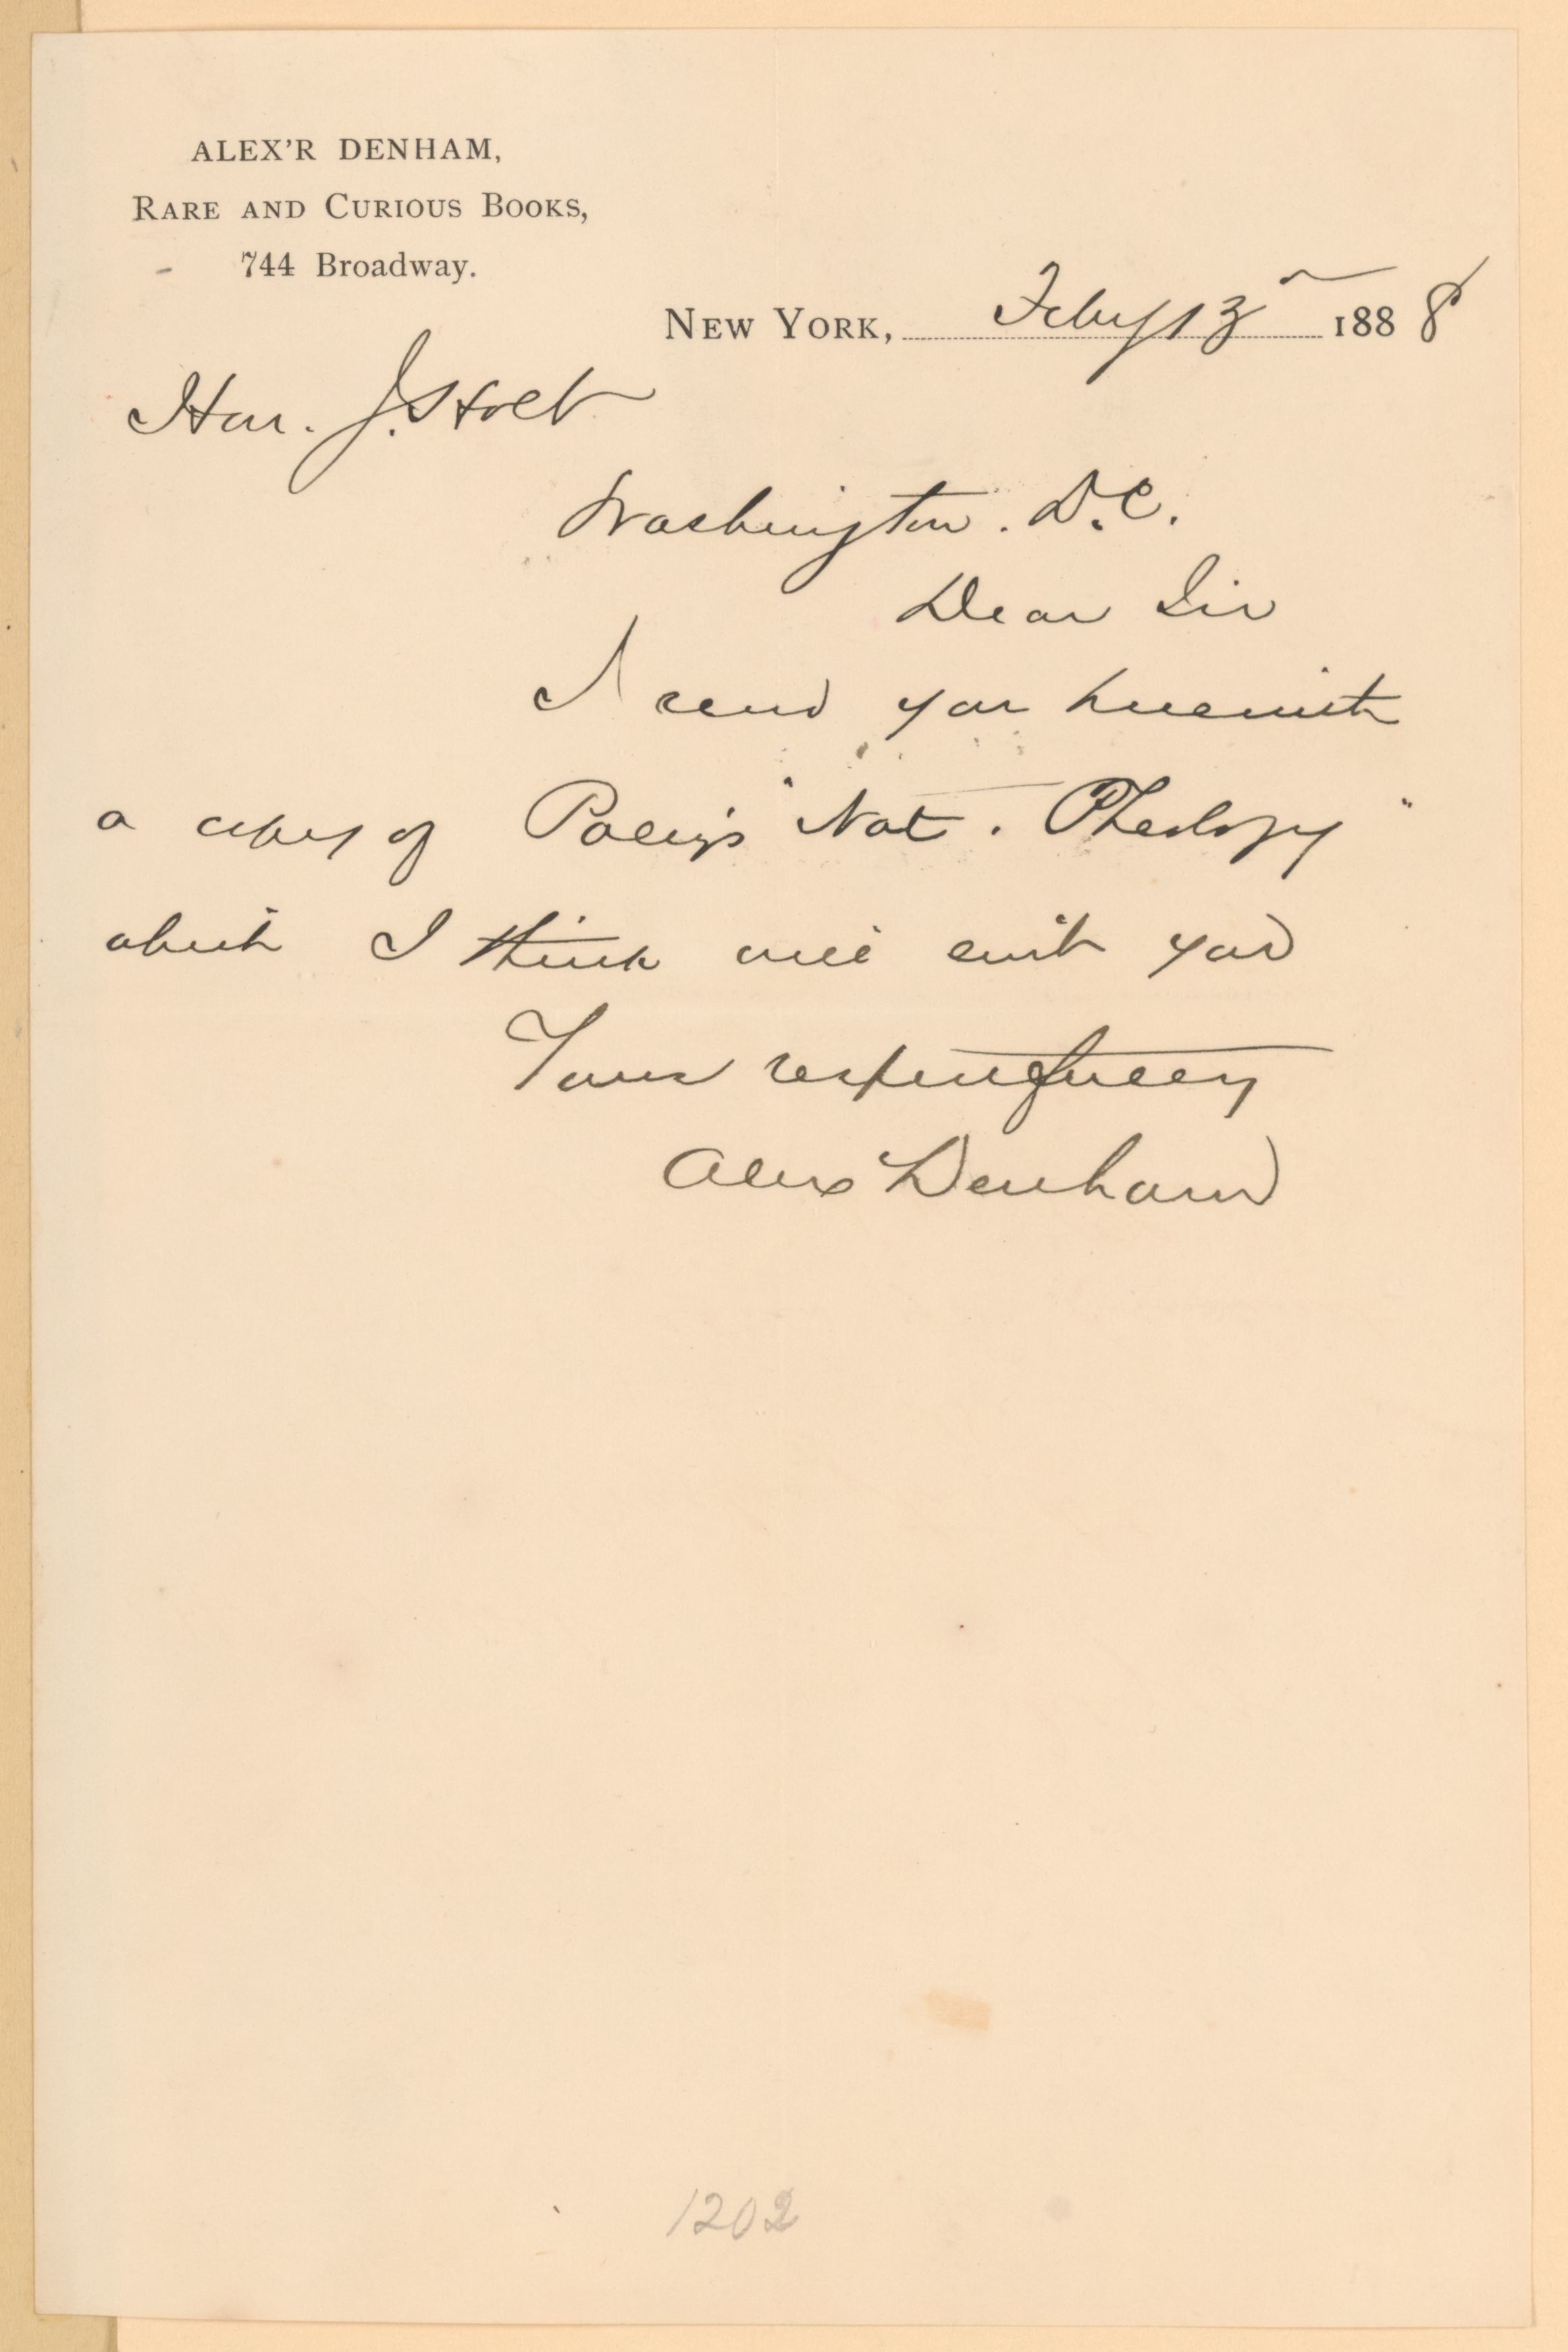 ALEX'R DENHAM,
RARE AND CURIOUS BOOKS,
744 Broadway.
NEW YORK, Feby 13 1888
Hon. J. Holt
Washington. D.C.
Dear Sir
I send you herewith
a copy of Paley's "Nat. Theology"
which I think will suit you
Yours respectfully
Alex Denham
1202